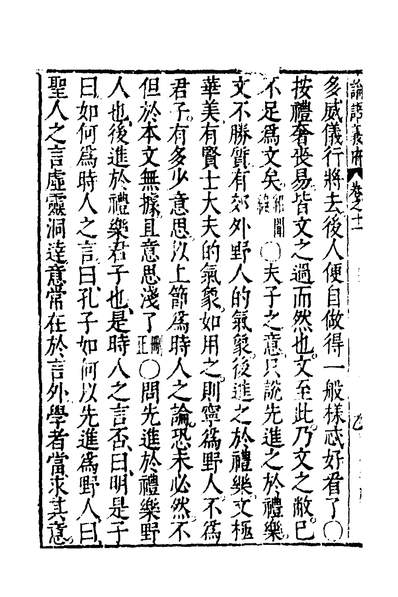 論語義府 卷之十一
多威儀行將去後人便自做得一般樣忒好看了〇
按禮奢喪易皆文之過而然也文至此乃文之敝已
不足爲文矣〇夫子之意只說先進之於禮樂
文不勝質有郊外野人的氣象後進之於禮樂文極
華美有賢士大夫的氣象如用之則寧爲野人不爲
君子有多少意思以上節爲時人之論恐未必然不
但於本文無據且意思淺了〇問先進於禮樂野
人也後進於禮樂君子也是時人之言否曰明是子
曰如何爲時人之言曰孔子如何以先進爲野人曰
聖人之言虛靈洞達意常在於言外學者當求其意